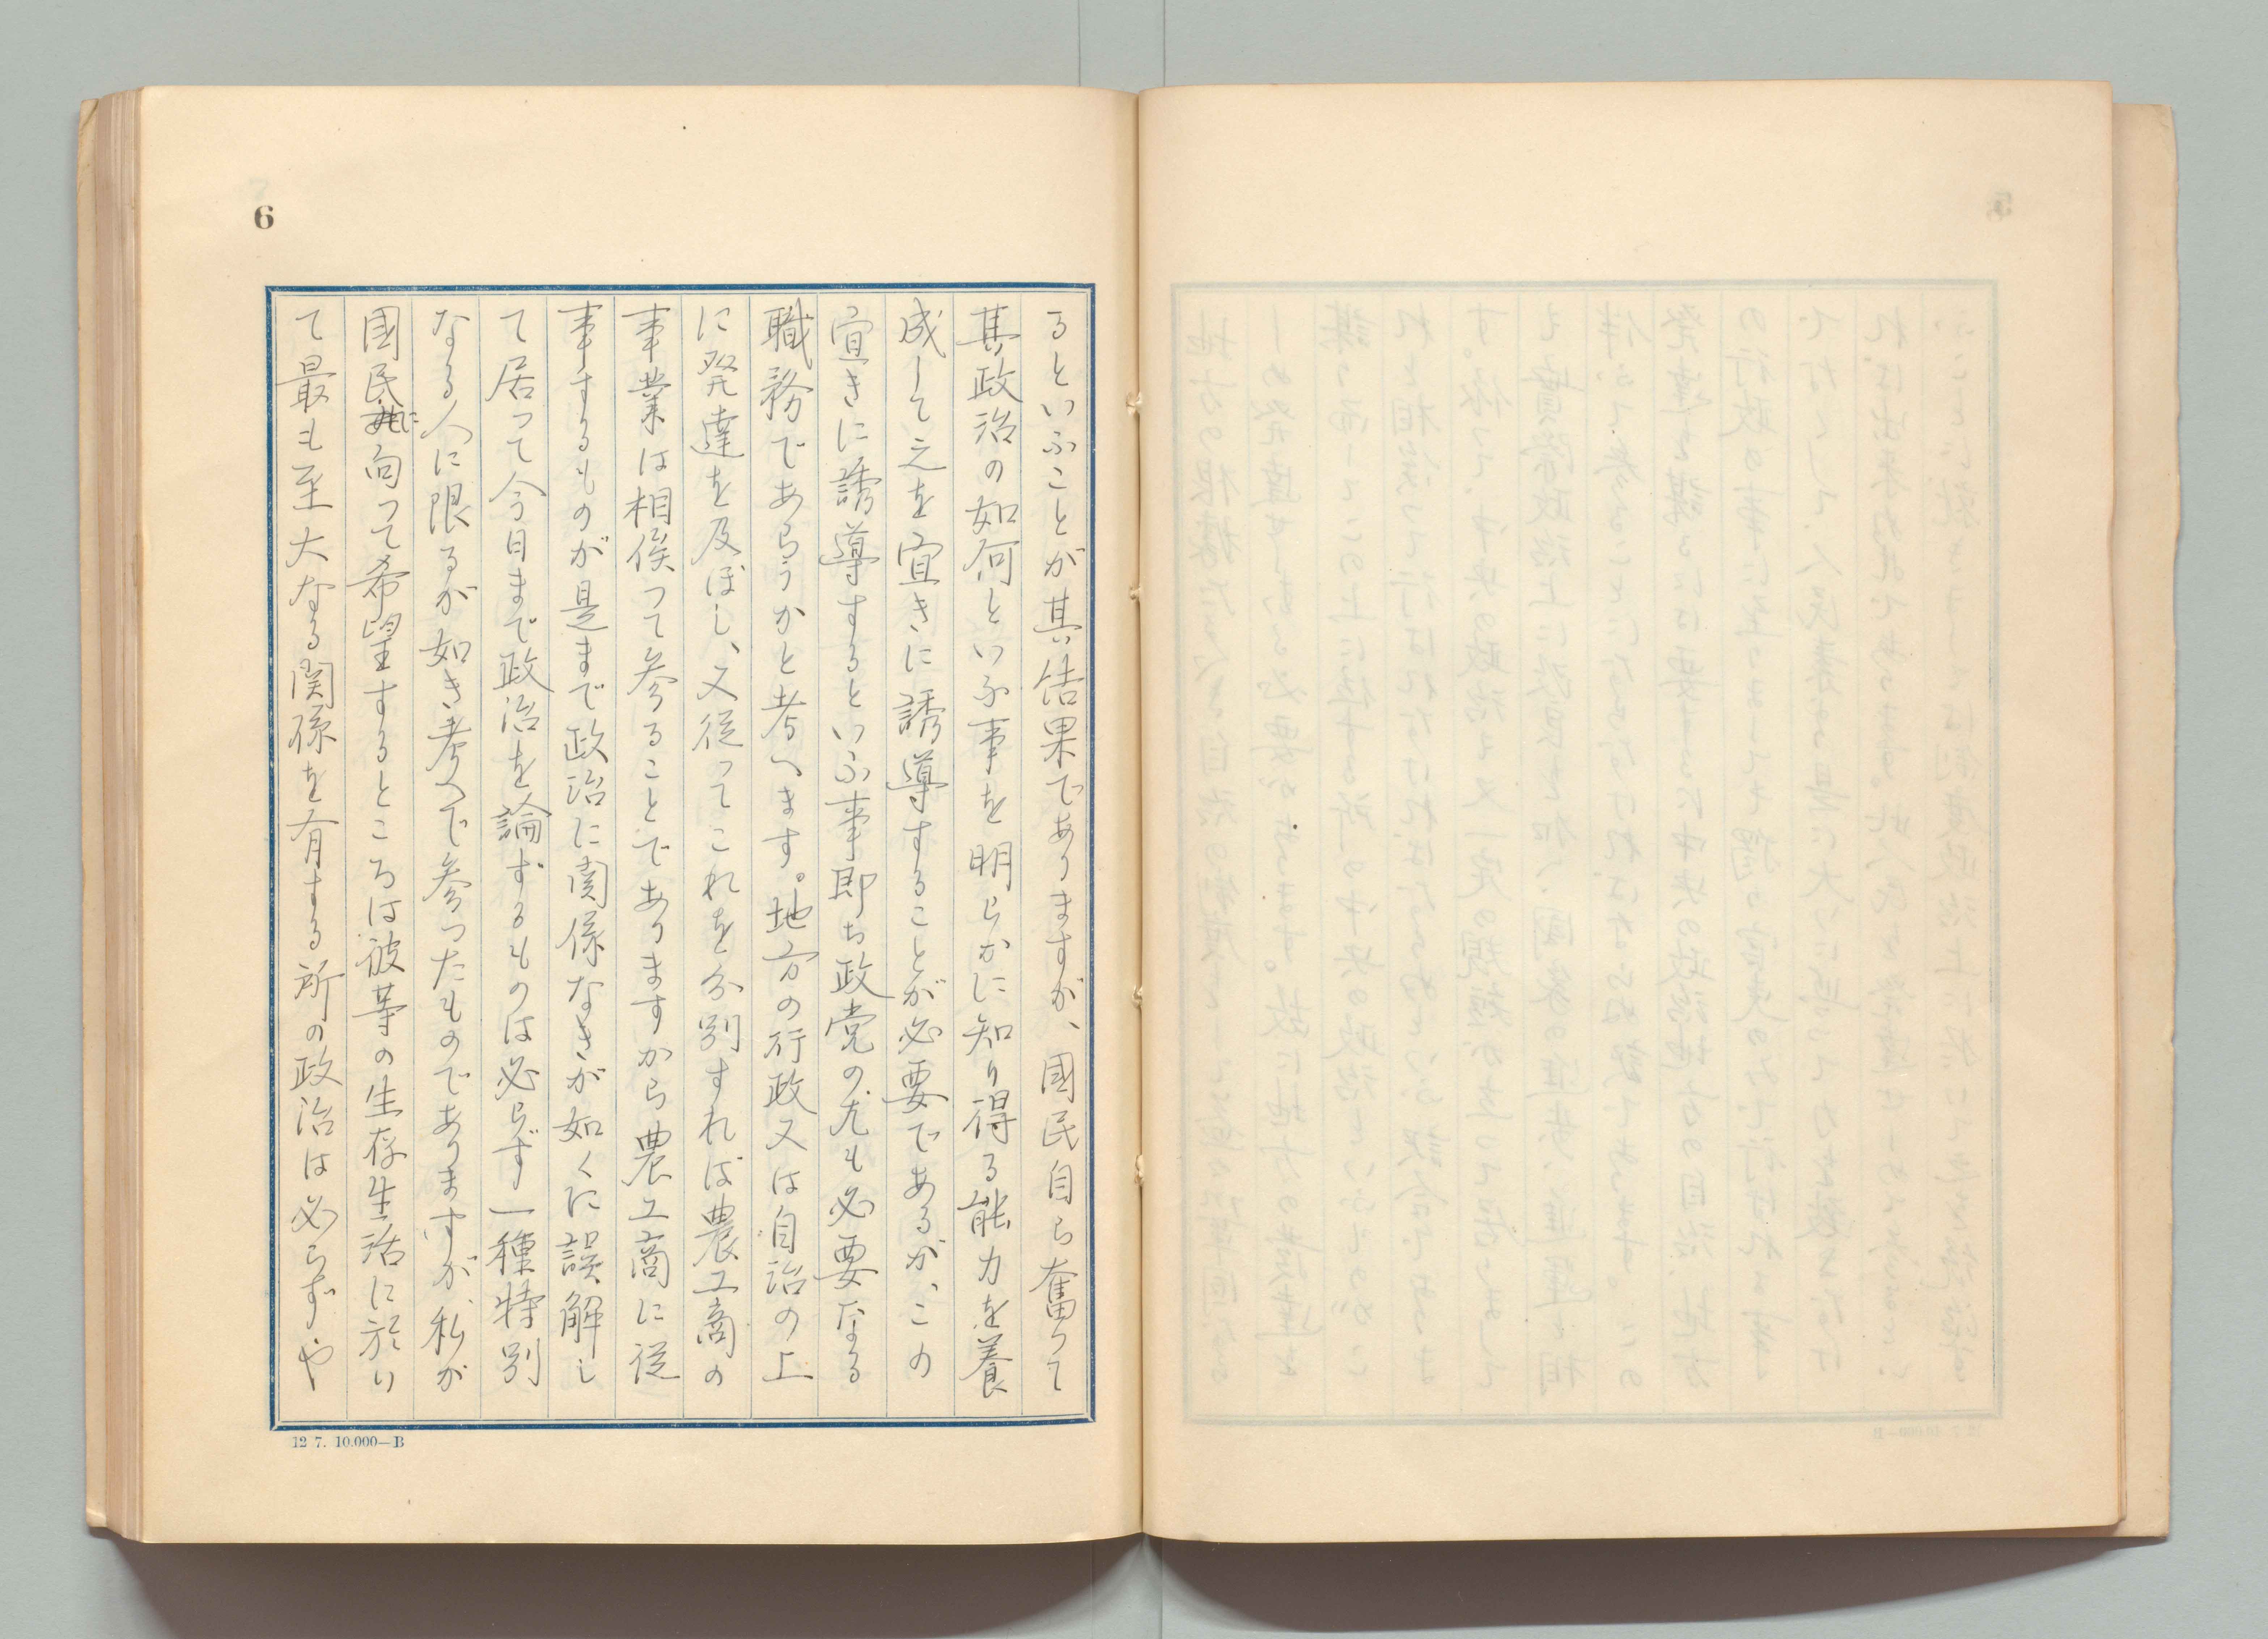 6
るといふことが其結果でありますが、國民自ら奮つて
其政治の如何といふ事を明らかに知り得る能力を養
成して之を宜きに誘導することが必要であるが、この
宜きに誘導するといふ事即ち政党の尤も必要なる
職務であらうかと考へます。地方の行政又は自治の上
に発達を及ぼし、又従つてこれを分別すれば農工商の
事業は相俟つて参ることでありますから農工商に従
事するものが是まで政治に関係なきが如くに誤解し
て居つて今日まで政治を論ずるものは必らず一種特別
なる人に限るが如き考へで参つたものでありますが、私が
國民に向つて希望するところは彼等の生存生活に於い
て最も至大なる関係を有する所の政治は必らずや
12 7. 10.000—B